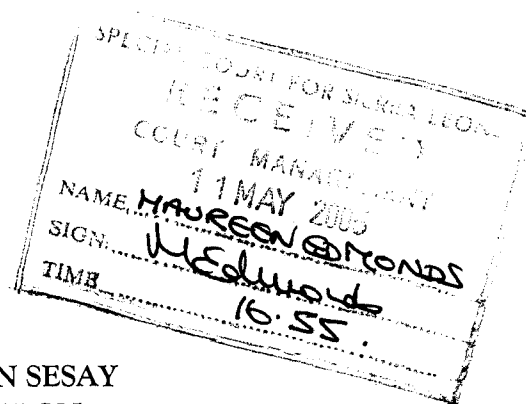 SPECIAL COURT FOR SIERRA LEONE
RECEIVED
COURT MANAGEMENT
11 MAY 2005
NAME MAUREEN EDMONDS
SIGN MEdmonds
TIME 16.55.
N SESAY